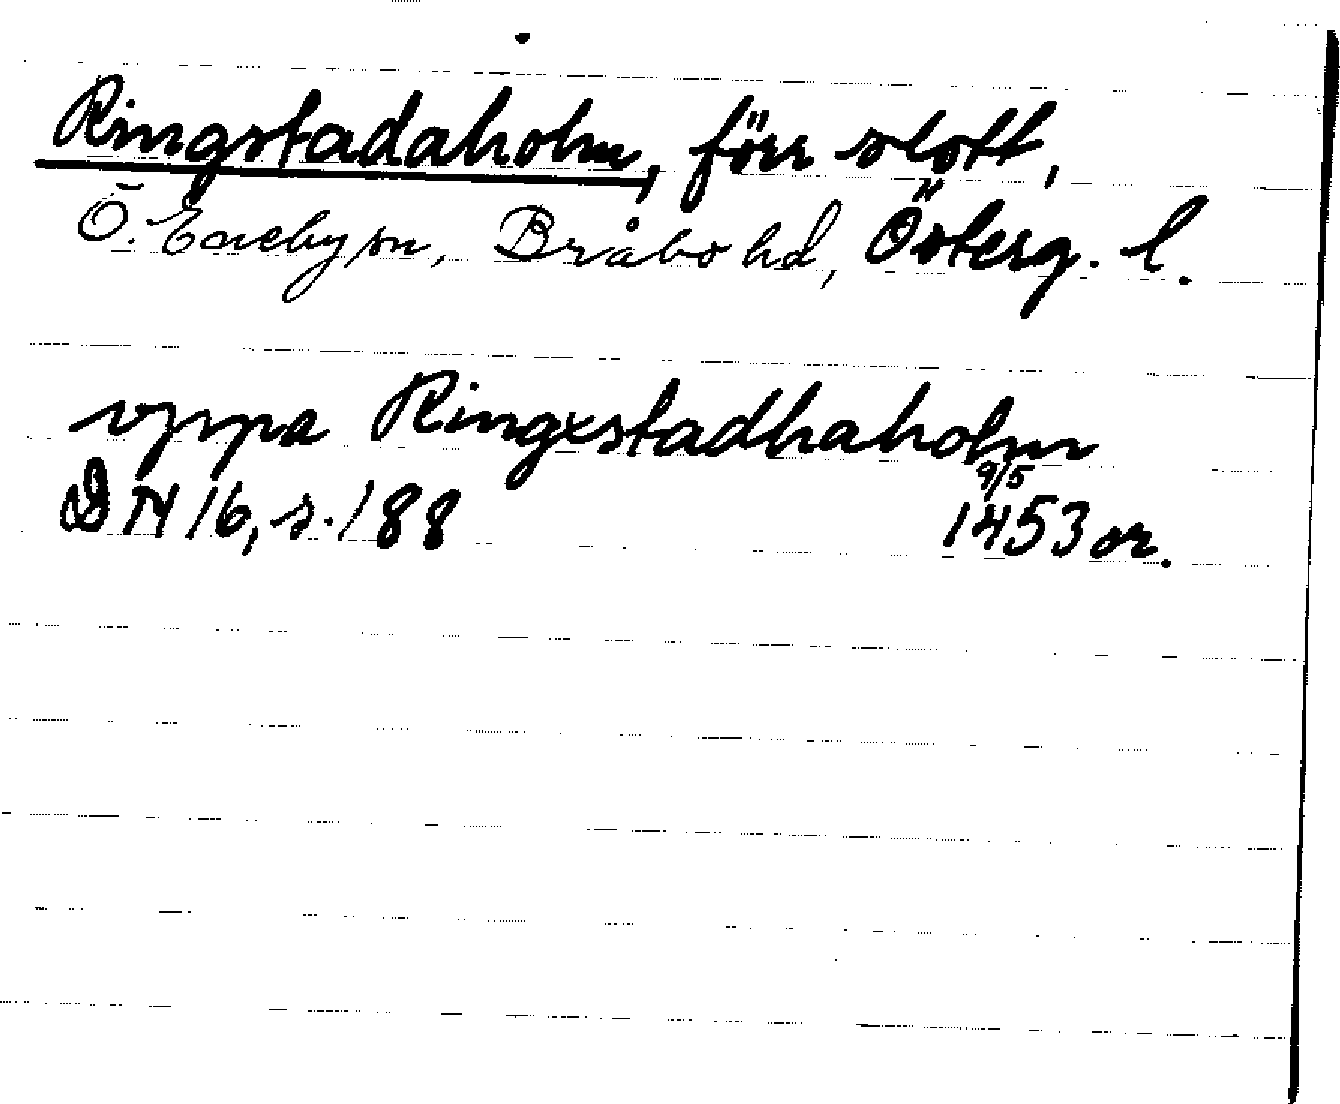 Ringstadaholm, förr slott,
Ö. Eneby sn, Bråbo hd, Österg. l.
vppa Ringxstadhaholm
DN 16, s. 188 9/5 1453 or.